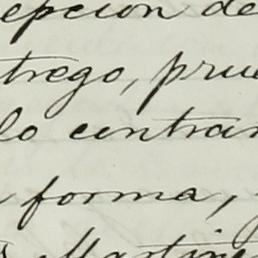 epcion de
trego, prue
lo contrar
forma,
Martine